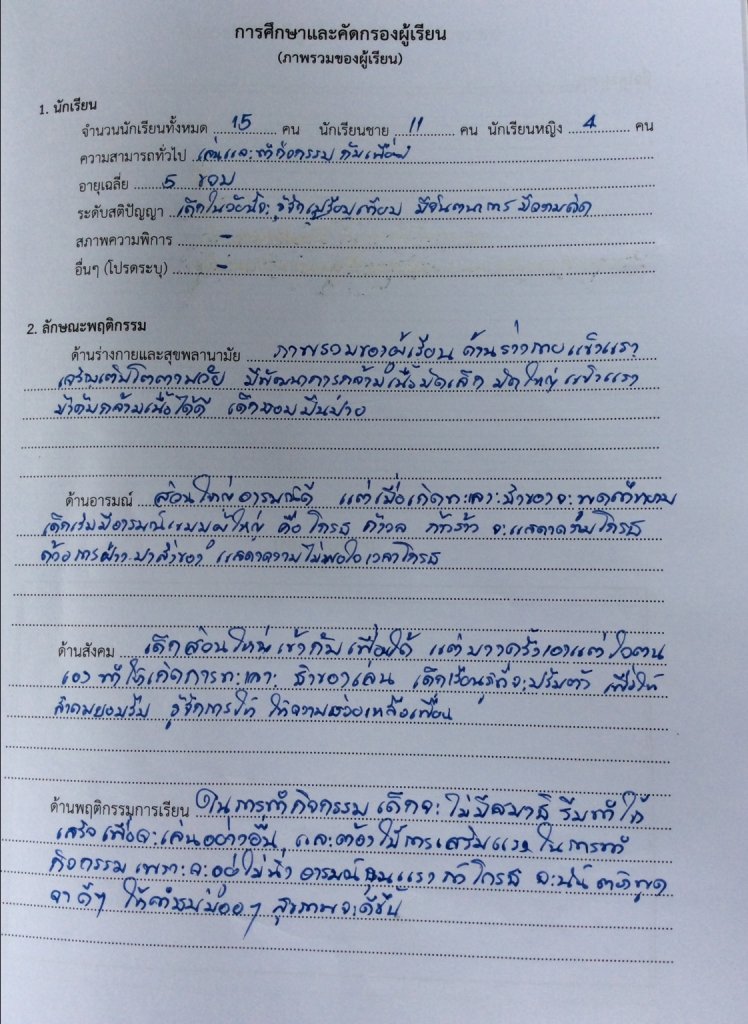 การศึกษาและคัดกรองผู้เรียน
(ภาพรวมของผู้เรียน)
1. นักเรียน
จำนวนนักเรียนทั้งหมด 15 คน นักเรียนชาย 11 คน นักเรียนหญิง 4 คน
ความสามารถทั่วไป เล่นและทำกิจกรรม กับเพื่อน
อายุเฉลี่ย 5 ขวบ
ระดับสติปัญญา เด็กในวัยนี้จะรู้จักเปรียบเทียบ มีจินตนาการ มีความคิด
สภาพความพิการ -
อื่นๆ (โปรดระบุ) -
2. ลักษณะพฤติกรรม
ด้านร่างกายและสุขพลานามัย ภาพรวมของผู้เรียน ด้านร่างกายแข็งแรง
เจริญเติบโตตามวัย มีพัฒนาการกล้ามเนื้อมัดเล็ก มัดใหญ่ แข็งแรง
บังคับกล้ามเนื้อได้ดี เด็กชอบปีนป่าย
ด้านอารมณ์ ส่วนใหญ่อารมณ์ดี แต่เมื่อเกิดทะเลาะ
เด็กเริ่มมีอารมณ์แบบผู้ใหญ่ คือ โกรธ กังวล ก้าวร้าว จะแสดง โกรธ
ด้วยการ แสดงความไม่พอใจเวลาโกรธ
ด้านสังคม เด็กส่วนใหญ่เข้ากับเพื่อนได้ แต่บางครั้งเอาแต่ใจตน
เอง ทำให้เกิดการทะเลาะ เล่น เด็กเรียนรู้ที่จะปรับตัว เพื่อให้
สังคมยอมรับ รู้จักการให้ ให้ความช่วยเหลือเพื่อน
ด้านพฤติกรรมการเรียน ในการทำกิจกรรม เด็กจะไม่มีสมาธิ รีบทำให้
เสร็จเพื่อจะเล่นอย่างอื่น และต้องใช้การเสริมแรงในการทำ
กิจกรรม เพราะจะอยู่ไม่นิ่ง อารมณ์รุนแรง โกรธ จะ ต้องพูด
จาดีๆ ให้คำชมบ่อยๆ จะดีขึ้น